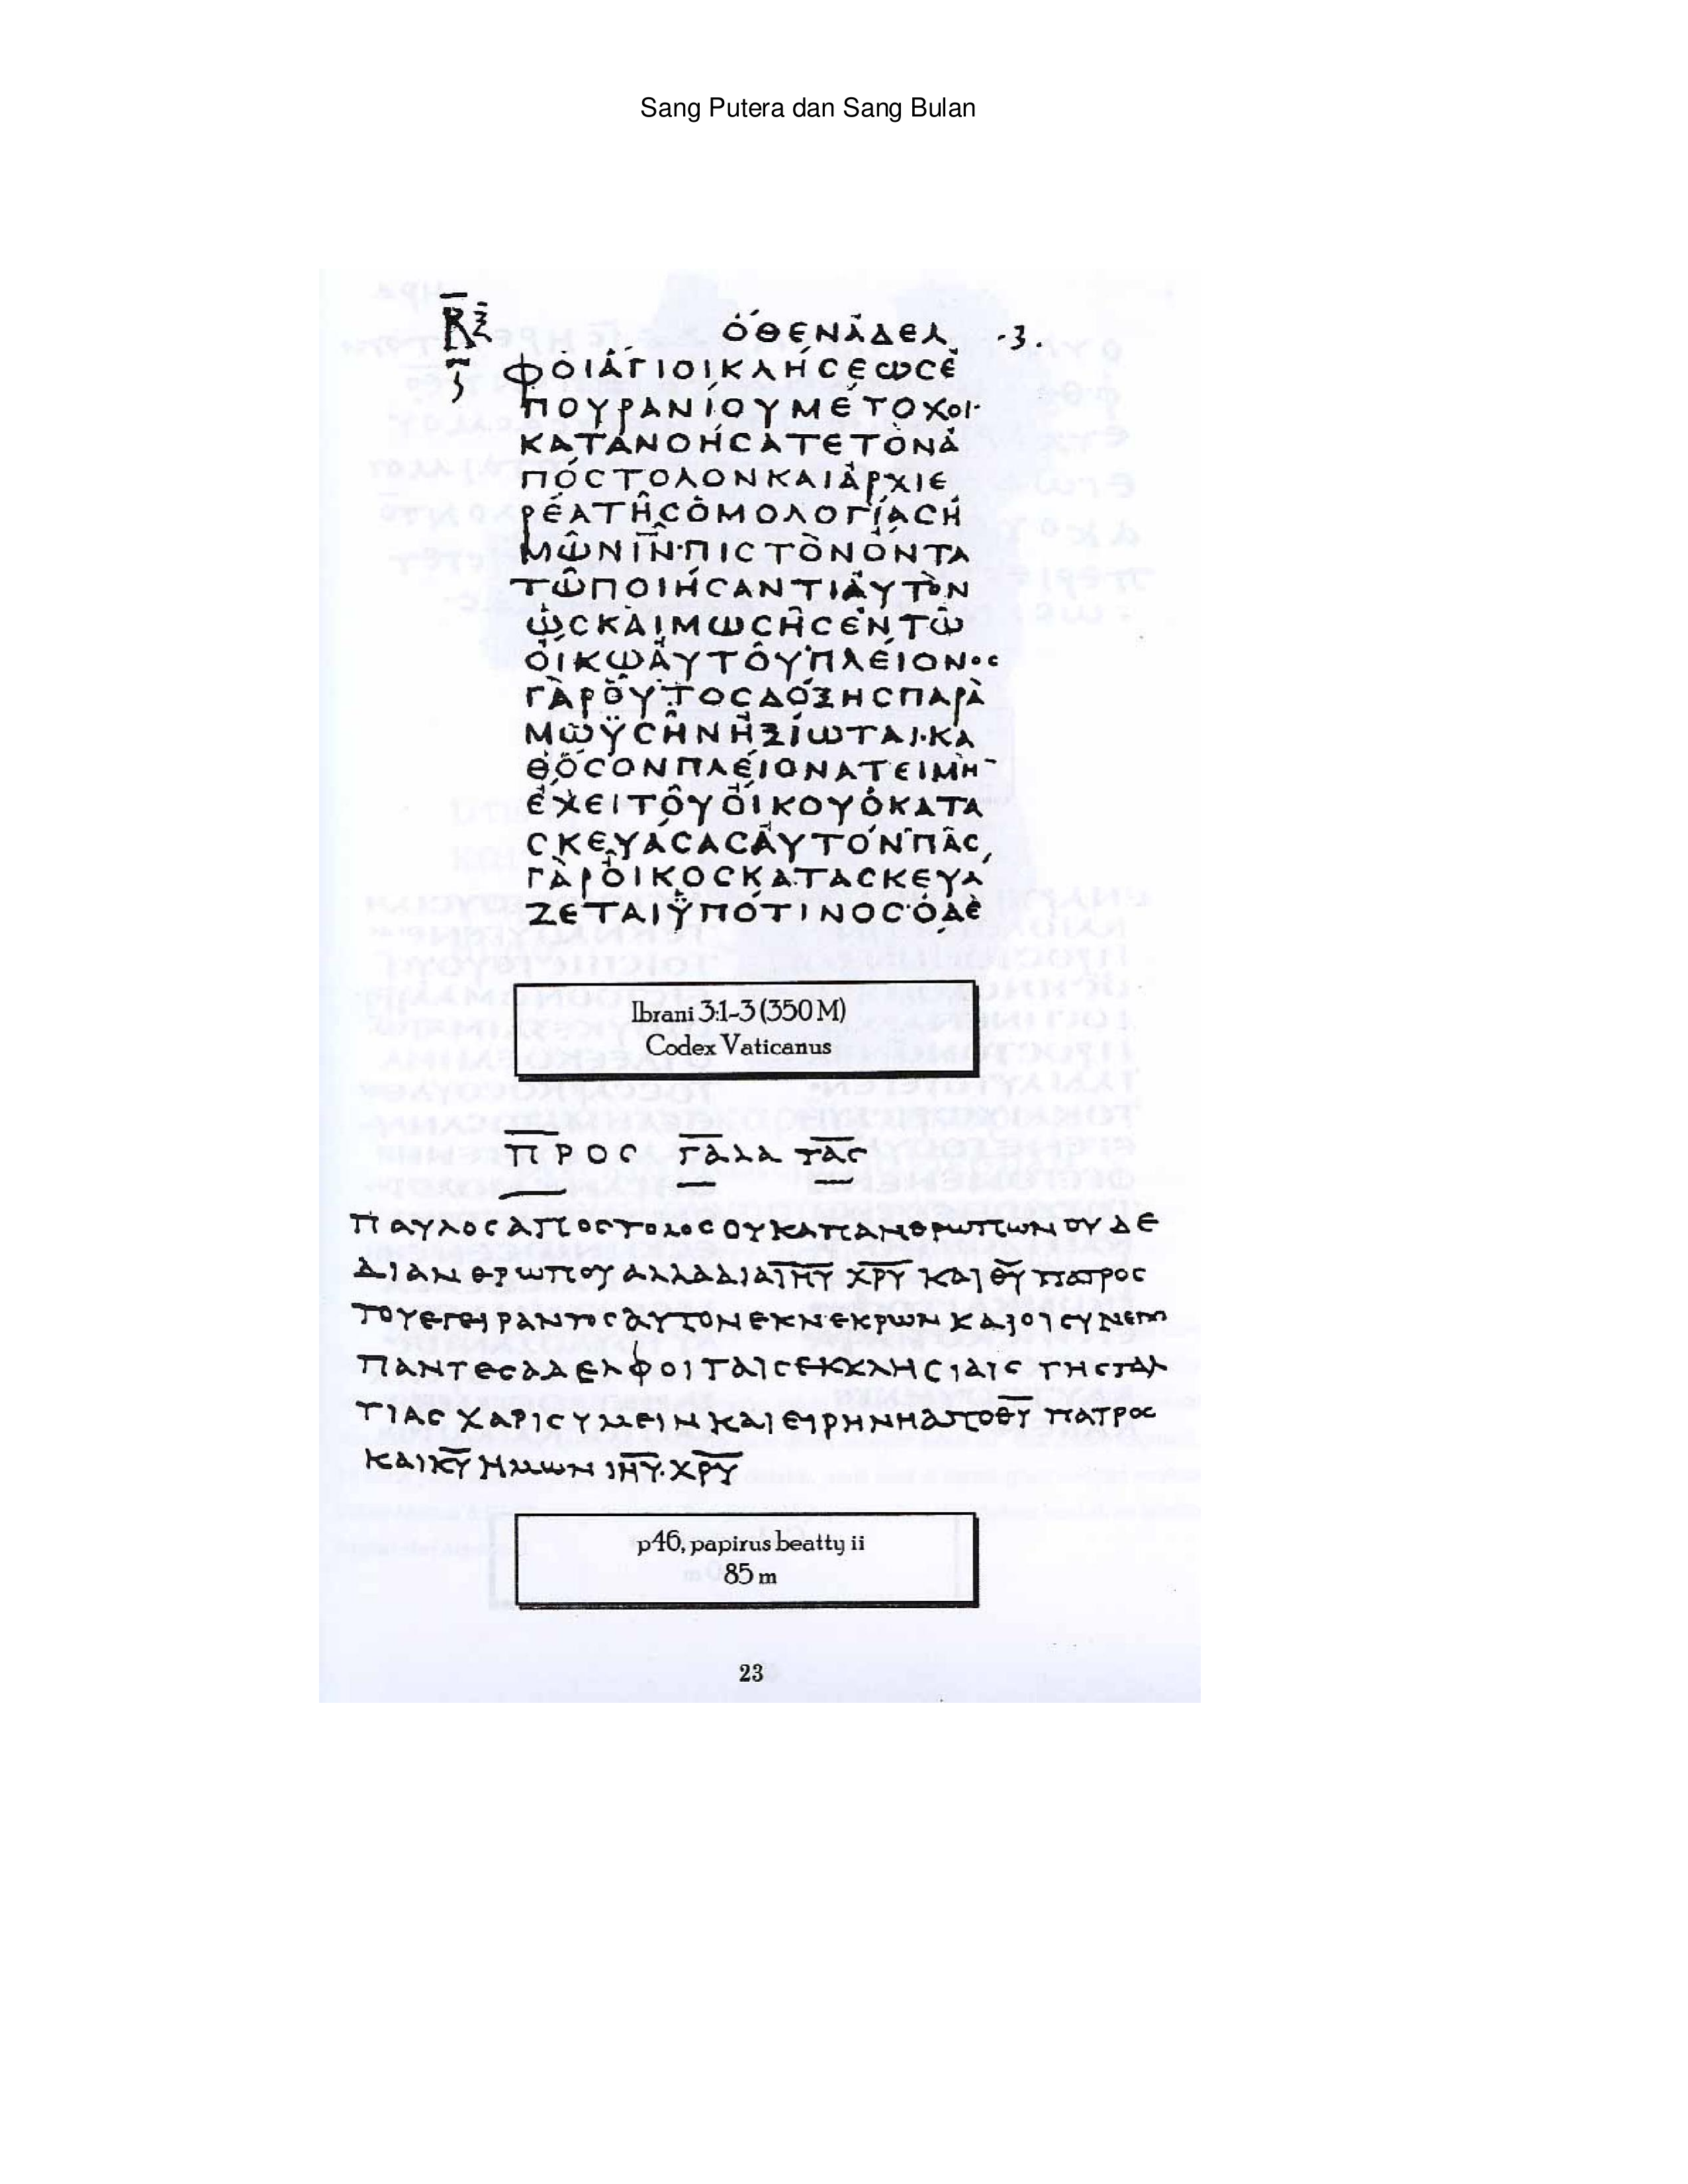 Sang Putera dan Sang Bulan
ὉΘΕΝἈΔΕΛ ·3.
ΦΟΙἍΓΙΟΙΚΛΉϹΕΩϹἘ
ΠΟΥΡΑΝΊΟΥΜΈΤΟΧΟΙ·
ΚΑΤΑΝΟΉϹΑΤΕΤῸΝἈ
ΠΌϹΤΟΛΟΝΚΑΙἈΡΧΙΕ
ΡΈΑΤΗ͂ϹὉΜΟΛΟΓΊΑϹΗ
ΜΩ͂ΝΙ̅Ν̅·ΠΙϹΤῸΝὌΝΤΑ
ΤΩ͂ΠΟΙΉϹΑΝΤΙΑΥΤῸΝ
ὩϹΚΑῚΜΩϹΗ͂ϹἘΝΤΩ͂
ὌΙΚΩΑΥΤΟΥ͂ΠΛΕΊΟΝΟϹ
ΓᾺΡΟὟΤΟϹΔΌΞΗϹΠΑΡᾺ
ΜΩΫϹΗ͂ΝἨΞΊΩΤΑΙ·ΚΑ
ΘὍϹΟΝΠΛΕΊΟΝΑΤΕΙΜῊ
ἜΧΕΙΤΟΥ͂ὌΙΚΟΥὉΚΑΤΑ
ϹΚΕΥΆϹΑϹΑΥΤΌΝΠΑ͂Ϲ
ΓᾺΡὌΙΚΟϹΚΑΤΑϹΚΕΥΑ
ΖΕΤΑΙΫΠΌΤΙΝΟϹ·ὉΔῈ
Ibrani 3:1-3 (350 M)
Codex Vaticanus
ΠΡΟϹ ΓΑΛΑ ΤΑϹ
ΠΑΥΛΟϹΑΠΟϹΤΟΛΟϹΟΥΚΑΠΑΝΘΡΩΠΩΝΟΥΔΕ
ΔΙΑΝΘΡΩΠΟΥΑΛΛΑΔΙΑΙ̅Η̅Υ̅ Χ̅Ρ̅Υ̅ ΚΑΙΘ̅Υ̅ ΠΑΤΡΟϹ
ΤΟΥΕΓΕΙΡΑΝΤΟϹΑΥΤΟΝΕΚΝΕΚΡΩΝΚΑΙΟΙϹΥΝΕΜΟΙ
ΠΑΝΤΕϹΑΔΕΛΦΟΙΤΑΙϹΕΚΚΛΗϹΙΑΙϹ ΤΗϹΓΑΛΑ
ΤΙΑϹ ΧΑΡΙϹΥΜΕΙΝΚΑΙΕΙΡΗΝΗΑΠΟΘ̅Υ̅ ΠΑΤΡΟϹ
ΚΑΙΚ̅Υ̅ΗΜΩΝ Ι̅Η̅Υ̅·Χ̅Ρ̅Υ̅
p46, papirus beatty ii
85 m
23